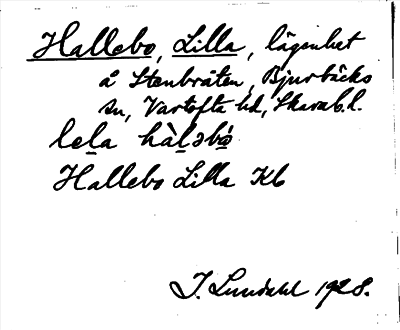 Hallebo, Lilla, lägenhet
å Stenbråten, Bjurbäcks
sn, Vartofta hd, Skarab.l.
lela hàləbo
Hallebo Lilla Kb
I. Lundahl 1928.